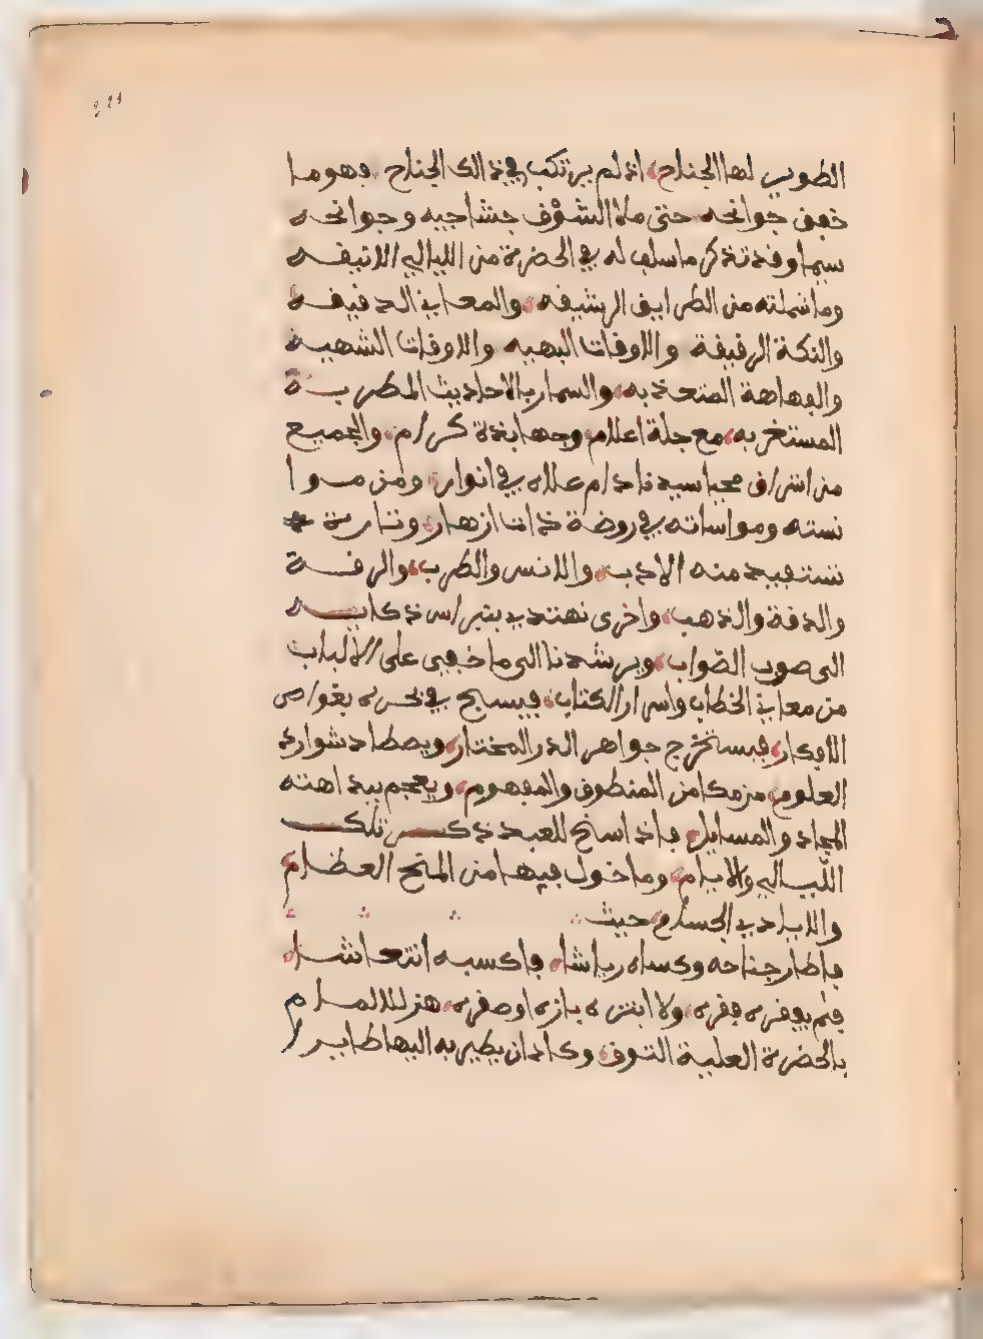 الطوير لها الجناح، اذ لم يرتكب في ذالك الجناح، فهو ما
خفق جوانحه حتى ملا الشوق حشا جيبه وجوانحه
سيما وقد تذكر ما سلف له في الحضرة من الليالي الانيقه
وما شملته من الطرايف الرشيقه، والمعاني الدقيقه
والنكة الرقيقة والاوقات البهيه والاوقات الشهيه
والفهاهة المتعذبه، والسمار بالاحاديث المطربة
المستغربه، مع جلة اعلام، وجهابذة كرام، والجميع
من اشراق محيا سيدنا دام علاه في انوار، ومن موا
نسته ومواساته في روضة ذات ازهار، وتارة
نستفيد منه الادب، والانس والطرب، والرقة
والدقة والذهب، واخرى نهتدي بنبراس ذكايه
الى صوب الصواب، ويرشدنا الى ما خفي على الالباب
من معاني الخطاب واسرار الكتاب، فيسبح في بحره بغواص
الافكار، فيستخرج جواهر الدر المختار، ويصطاد شوارد
العلوم، من مكامن المنطوق والمفهوم، ويعجم ببداهته
والمسايل، فاذا سنح للعبد ذكر تلك
الليالي والايام، وما خول فيها من المنح العظام
والايادي الجسام، حيث
فاطار جناحه وكساه رياشا، فاكسبه انتعاشا،
فلم يعفره فقره، ولا ابتزه بازه او صقره، هزللالمام
بالحضرة العلية التوق، وكاد ان يطير به اليها طاير